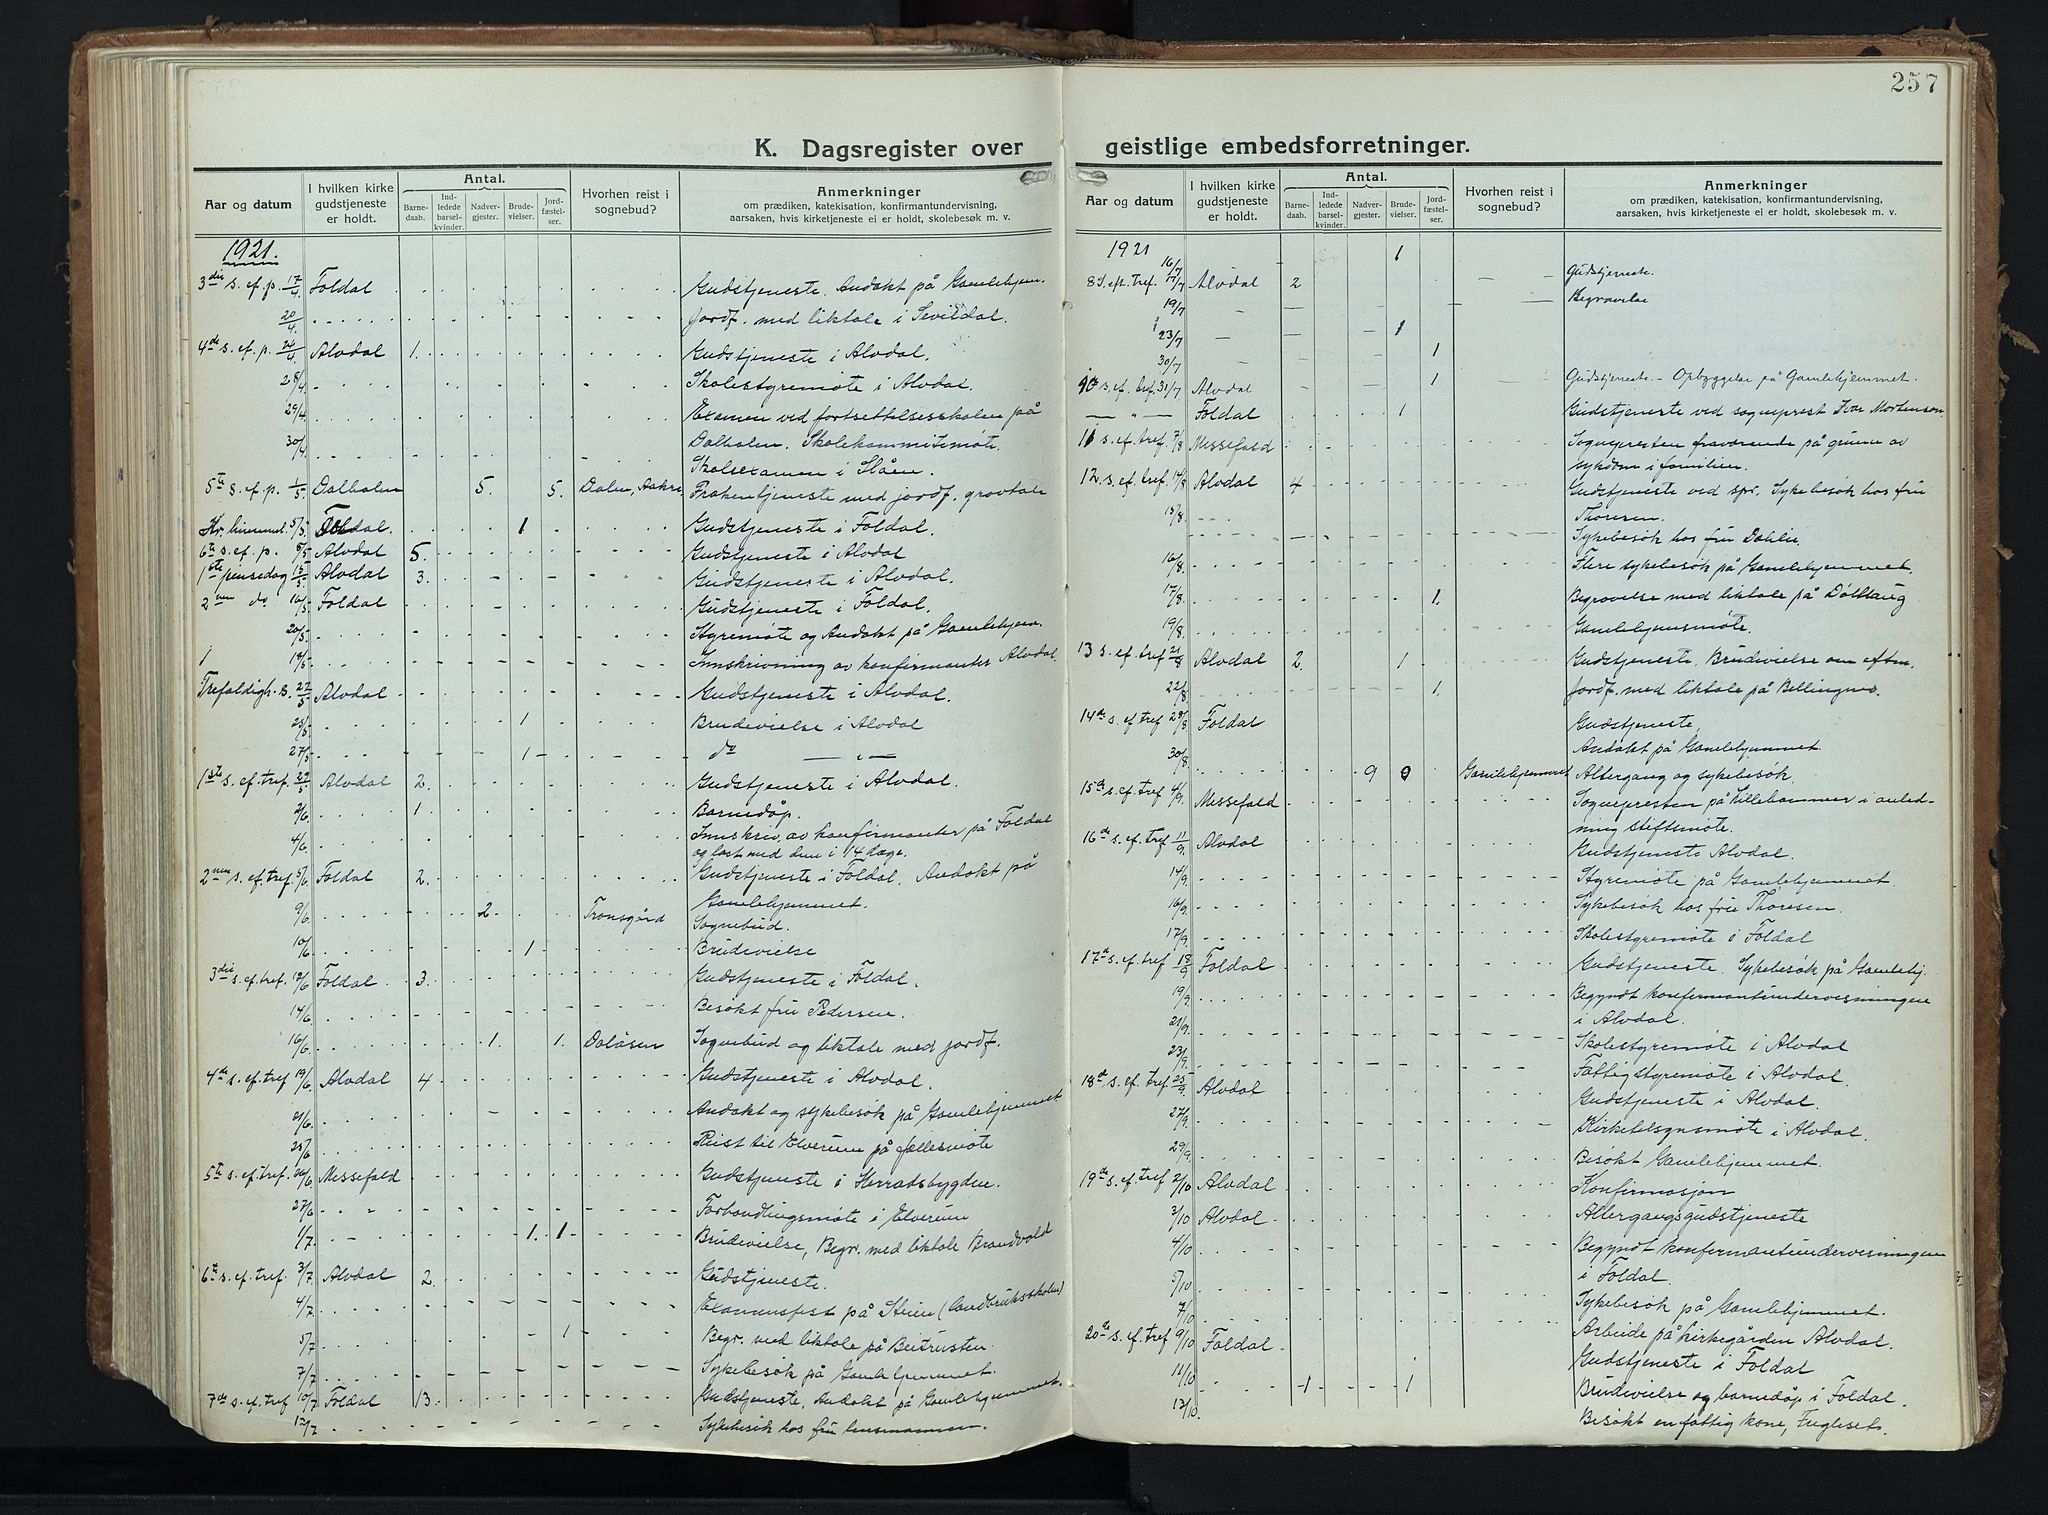 257
K. Dagsregister over geistlige embedsforretninger.
Aar og datum
I hvilken kirke gudstjeneste er holdt.
Antal.
Barnedaab.
Indledede barselkvinder.
Nadvergjester.
Brudevielser.
Jordfæstelser.
Hvorhen reist i sognebud?
Anmerkninger
om prædiken, katekisation, konfirmantundervisning,
aarsaken, hvis kirketjeneste ei er holdt, skolebesøk m. v.
1921.
3die s. ef. p. 17/4 Foldal Gudstjeneste. Andakt på Gamlehjem.
20/4 Jordf. med liktale i
4de s. ef. p. 24/4 Alvdal 1. Gudstjeneste i Alvdal.
28/4 Skolestyremöte i Alvdal.
29/4 Examen ved fortsettelsesskolen på
30/4 Dalholen. Skolekommitemöte.
Skolexamen i Slåen.
5te s. ef. p. 1/5 Dalholen 5. 5. Dalen, med jordf. gravtale
Kr. himmel. 5/5 Foldal. 1 Gudstjeneste i Foldal.
6te s. ef. p. 8/5 Alvdal 5. Gudstjeneste i Alvdal
1ste pinsedag 15/5 Alvdal 3. Gudstjeneste i Alvdal.
2nen do 16/5 Foldal Gudstjeneste i Foldal.
20/5 Styremöte og Andakt på Gamlehjem.
18/5 Innskrivning av konfirmanter Alvdal.
Trefaldigh. s. 22/5 Alvdal Gudstjeneste i Alvdal.
1 Brudevielse i Alvdal
27/5 1 do — " —
1ste s. ef. tref. Alvdal 2. Gudstjeneste i Alvdal.
2/6 1. Barnedåp.
4/6 Innskriv. av konfirmanter på Foldal
og lest med dem i 14 dage.
2nen s. ef. tref. 5/6 Foldal 2. Gudstjeneste i Foldal. Andakt på
Gamlehjemmet.
9/6 2 Tronsgård Sognebud.
10/6 1 Brudevielse
3die s. ef. tref. 12/6 Foldal 3. Gudstjeneste i Foldal.
14/6 Besökt fru Pedersen.
16/6 1. 1. Dalåsen Sognebud og liktale med jordf.
4de s. ef. tref 19/6 Alvdal 4 Gudstjeneste i Alvdal.
21/6 Andakt og sykebesök på Gamlehjemmet
25/6 Reist til Elverum på fællesmöte
5te s. ef. tref. 26/6 Messefald Gudstjeneste i Herradsbygden.
27/6 Forhandlingsmöte i Elverum
1/7 1. 1 Brudevielse, Begr. med liktale Brandvold
6te s. ef. tref. 3/7 Alvdal 2. Gudstjeneste.
4/7 Examensfest på Steien (landbruksskolen)
5/7 1 Begr. med liktale på
7/7 Sykebesök på Gamlehjemmet.
7de s. ef. tref 10/7 Foldal 13. Gudstjeneste, Andakt på Gamlehjemmet.
12/7 Sykebesök hos fru lensmannen.
Aar og datum
I hvilken kirke gudstjeneste er holdt.
Antal.
Barnedaab.
Indledede barselkvinder.
Nadvergjester.
Brudevielser.
Jordfæstelser.
Hvorhen reist i sognebud?
Anmerkninger
om prædiken, katekisation, konfirmantundervisning,
aarsaken, hvis kirketjeneste ei er holdt, skolebesøk m. v.
1921
16/7 1
8 S. eft. tref. 17/7 Alvdal 2 Gudstjeneste.
19/7 Begravelse
23/7 1
30/7 1
10de s. ef. tref. 31/7 Alvdal 1 Gudstjeneste. - Opbyggelse på Gamlehjemmet.
— " — Foldal 1 Gudstjeneste ved sogneprest Ivar Mortenson
11 s. ef. tref. 7/8 Messefald Sognepresten fraværende på grunn av
sykdom i familien.
12. s. ef. tref 14/8 Alvdal 4 Gudstjeneste ved spr. Sykebesök hos fru
Thoresen.
15/8. Sykebesök hos fru Dahlen.
16/8. Flere sykebesök på Gamlehjemmet.
17/8. 1. Begravelse med liktale på Dölhaug
19/8. Gamlehjemsmöte.
13 s. ef. tref 21/8 Alvdal 2. 1 Gudstjeneste. Brudevielse om efterm.
22/8 1. Jordf. med liktale på Bellingmo.
14de s. ef tref 28/8 Foldal Gudstjeneste,
30/8 Andakt på Gamlehjemmet.
9 0 Gamlehjemmet Altergang og sykebesök.
15de s. ef. tref 4/9. Messefald Sognepresten på Lillehammer i anled-
ning stiftsmöte.
16de s. ef. tref 11/9. Alvdal Gudstjeneste Alvdal.
14/9. Styremöte på Gamlehjemmet.
16/9. Sykebesök hos fru Thoresen.
17/9. Skolestyremöte i Foldal
17de s. ef. tref 18/9 Foldal Gudstjeneste. Sykebesök på Gamlehj.
19/9. Begyndt konfirmantundervisningen
i Alvdal.
21/9. Skolestyremöte i Alvdal
23/9. Fattigstyremöte i Alvdal.
18de s. ef. tref. 25/9. Alvdal Gudstjeneste i Alvdal.
27/9. Kirketilsynsmöte i Alvdal.
29/9. Besökt Gamlehjemmet.
19de s. ef. tref 2/10 Alvdal Konfirmasjon
3/10 Alvdal Altergangsgudstjeneste
4/10 Begyndt konfirmantundervisningen
i Foldal.
5/10 Sykebesök på Gamlehjemmet.
7/10 Arbeide på kirkegården Alvdal.
20de s. ef. tref 9/10 Foldal Gudstjeneste i Foldal
11/10 1 1 Brudevielse og barnedåp i Foldal.
12/10. Besökt en fattig kone,